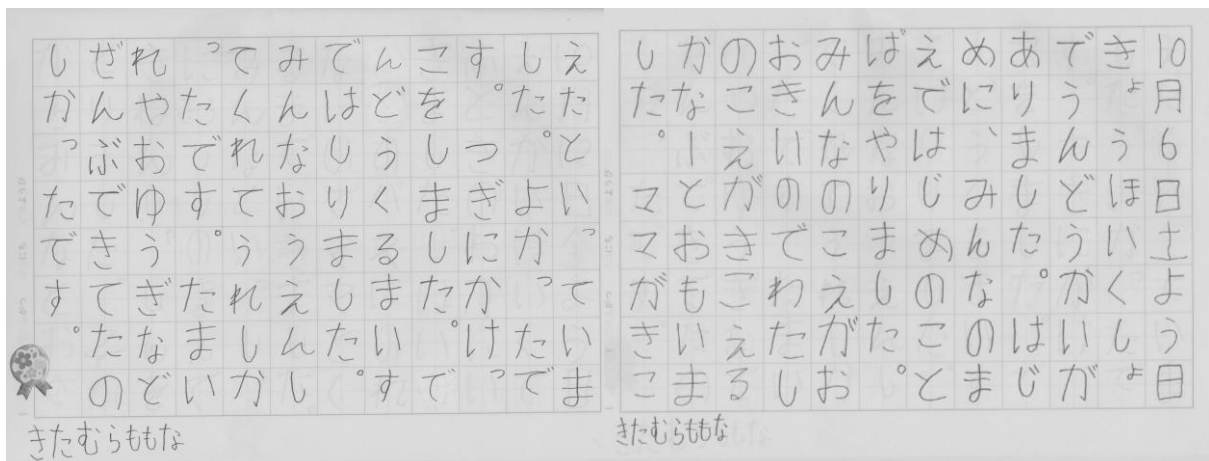 10月6日土よう日
きょうほいくしょ
でうんどうがいが
ありました。はじ
めに、みんなのま
えではじめのこと
ばをやりました。
みんなのこえがお
おきいのでわたし
のこえがきこえる
かなーとおもいま
した。ママがきこ
きたむらももな
えたといっていま
した。よかったで
す。つぎにかけっ
こをしました。で
んどうくるまいす
ではしりました。
みんなおうえんし
てくれてうれしか
ったです。たまい
れやおゆうぎなど
ぜんぶできてたの
しかったです。
きたむらももな